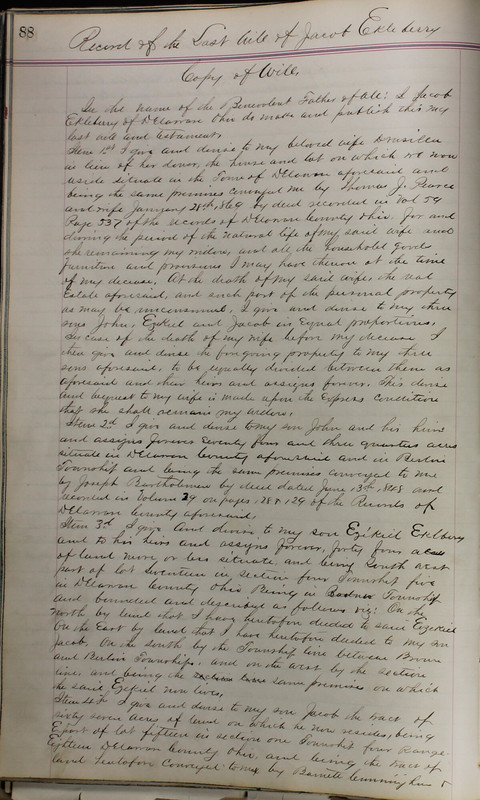 88
Record of the Last Will of Jacob Eklebury
Copy of Will
In the name of the Benevolent Father of All: I Jacob
Eklebury of Delaware Ohio do make and publish this my
last will and testament.
Item 1st I give and devise to my beloved wife Drusilla
in lieu of her dower, the house and lot on which we now
reside situate in the Town of Delaware aforesaid and
being the same premises conveyed me by Thomas J. Pearce
and wife January 28th, 1869 by deed recorded in Vol 59
Page 537 of the records of Delaware County Ohio. for and
during the period of the natural life of my said wife and
she remaining my widow, and all the household goods
furniture and provisions I may have thereon at the time
of my decease. At the death of my said wife, the real
Estate aforesaid, and such part of the personal property
as may be unconsumed, I give and devise to my three
sons John, Ezekiel and Jacob in equal proportions.
In case of the death of my wife before my decease I
then give and devise the foregoing property to my three
sons aforesaid, to be equally divided between them as
aforesaid and their heirs and assigns forever. This devise
and bequest to my wife is made upon the express condition
that she shall remain my widow.
Item 2nd I give and devise to my son John and his heirs
and assigns forever Seventy four and three quarters acres
situate in Delaware County aforesaid and in Berlin
Township and being the same premises conveyed to me
by Joseph Bartholomew by deed dated June 13th, 1848 and
recorded in Volume 29 on pages, 128 & 129 of the Records of
Delaware County aforesaid.
Item 3rd I give and devise to my son Ezekiel Eklebury
and to his heirs and assigns forever, forty four acres
of land more or less situate, and being South west
part of lot Seventeen in section four Township five
in Delaware County Ohio, Being in Township
and bounded and described as follows viz: On the
North by land that I have heretofore deeded to said Ezekiel
On the East by land that I have heretofore deeded to my son
Jacob, On the south by the Township line between Brown
and Berlin Townships, and on the west by the section
line, and being the same premises on which
the said Ezekiel now lives,
Item 4th I give and devise to my son Jacob the tract of
sixty seven acres of land on which he now resides, being
E part of lot fifteen in section one Township four Range
Eighteen Delaware County Ohio, and being the tract of
land heretofore conveyed to me by Barnett Cunningham &